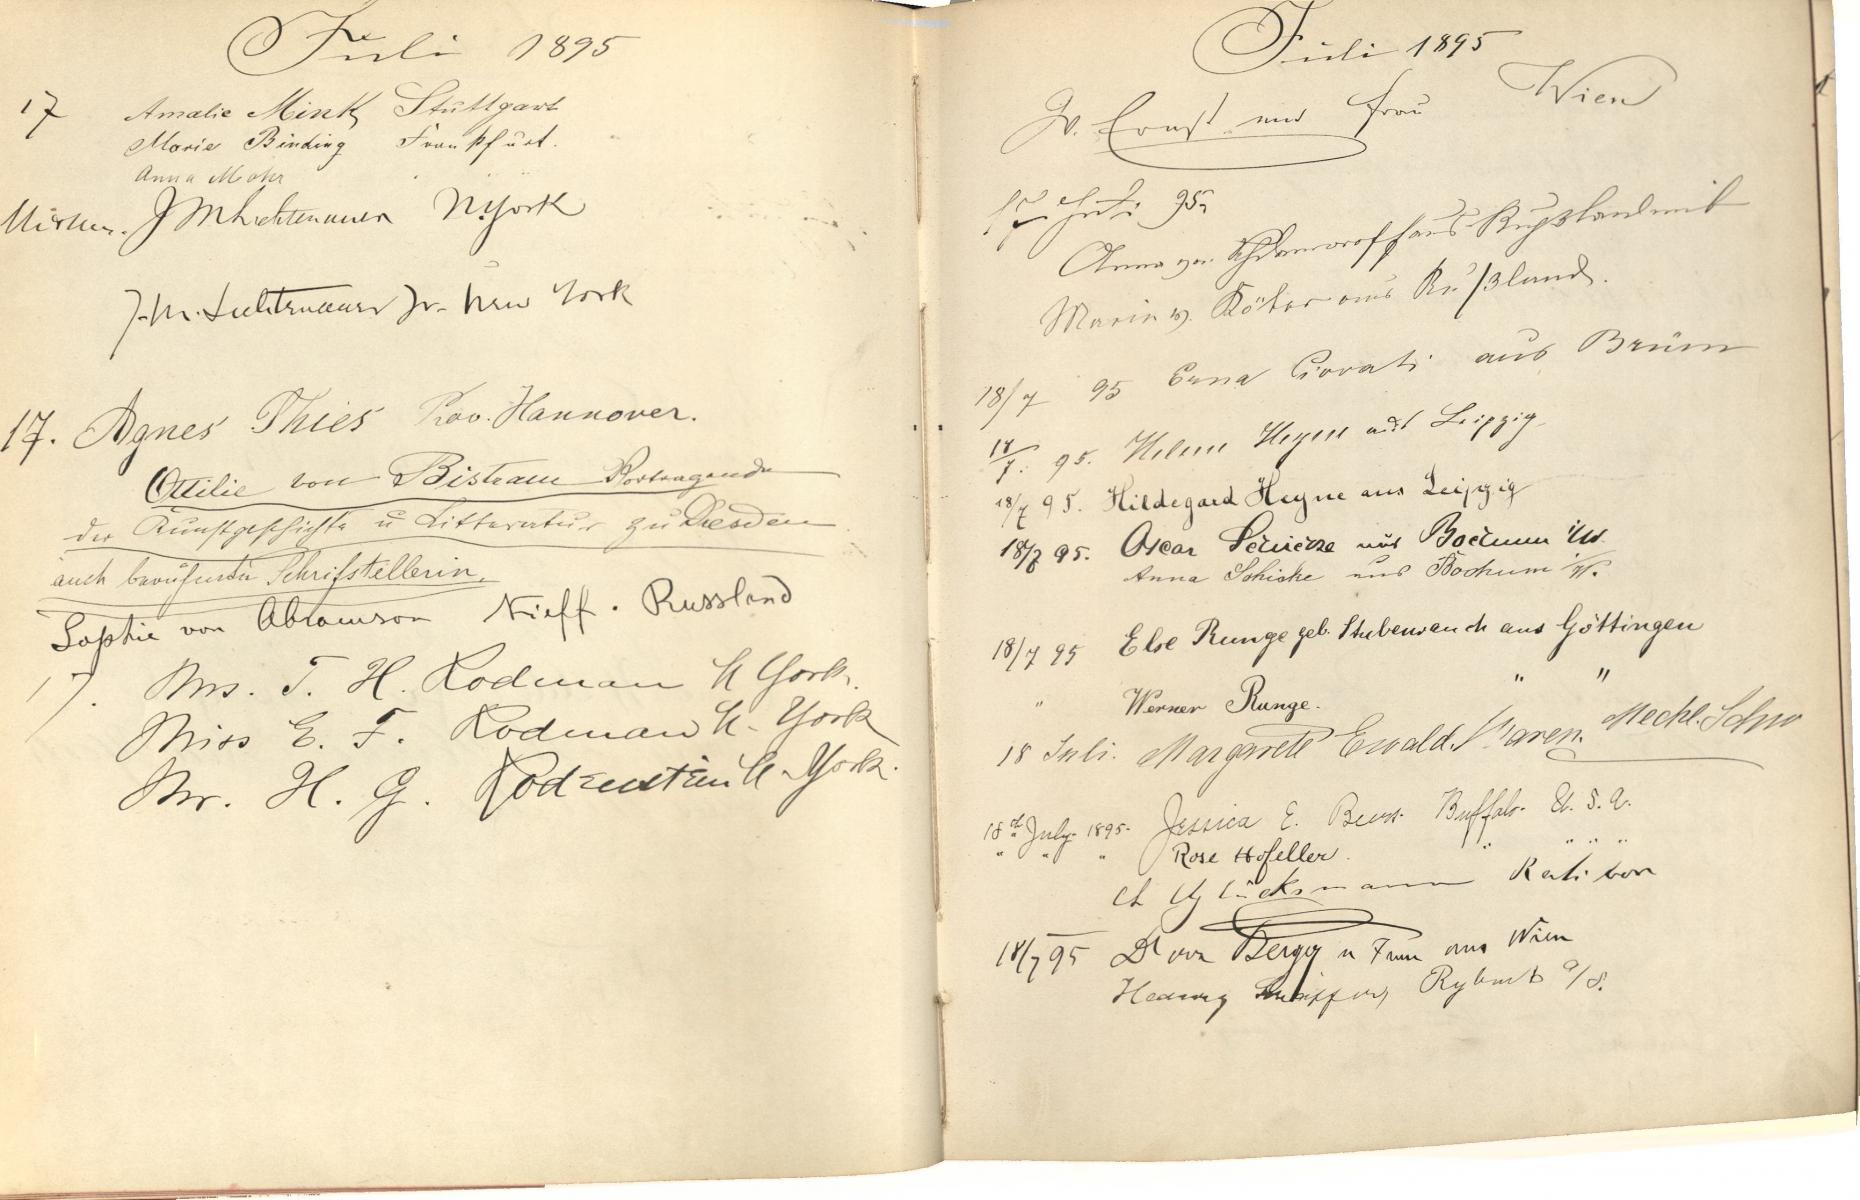 Juli 1895
17 Amalie Mink Stuttgart
Marie Binding Frankfurt.
Anna Mohr
J M Lichtenauer N. York
J. M. Lichtenauer Jr. New York
17. Agnes Thies Prov. Hannover.
Ottilie von Bistram Vortragende
der Kunstgeschichte u Litteratur zu Dresden
auch Schriftstellerin.
Sophie von Abramson Kieff. Russland
17. Mrs. T. H. Rodman N York.
Miss E. F. Rodman N. York
Mr. H. G. N. York.
Juli 1895
Ernst und Frau Wien
17 Juli 95.
Anna von aus Rußland mit
Marie v. aus Rußland.
18/7 95 Erna aus Brünn
18/7. 95. Helene Heyne aus Leipzig
18/7 95. Hildegard Heyne aus Leipzig
18/7 95. Oscar Schicke aus Bochum i/W.
Anna Schicke aus Bochum i/W.
18/7 95 Else Runge geb. Stubenrauch aus Göttingen
" Werner Runge. " "
18 Juli. Margarete Ewald. Waren. Meckl. Schw
18th July 1895. Jessica E. Beers. Buffalo. U. S. A.
" " " Rose Hofeller. " " " "
Glücksmann Ratibor
18/7 95 Dr von Bergg u Frau aus Wien
Hedwig Rybnik o/S.